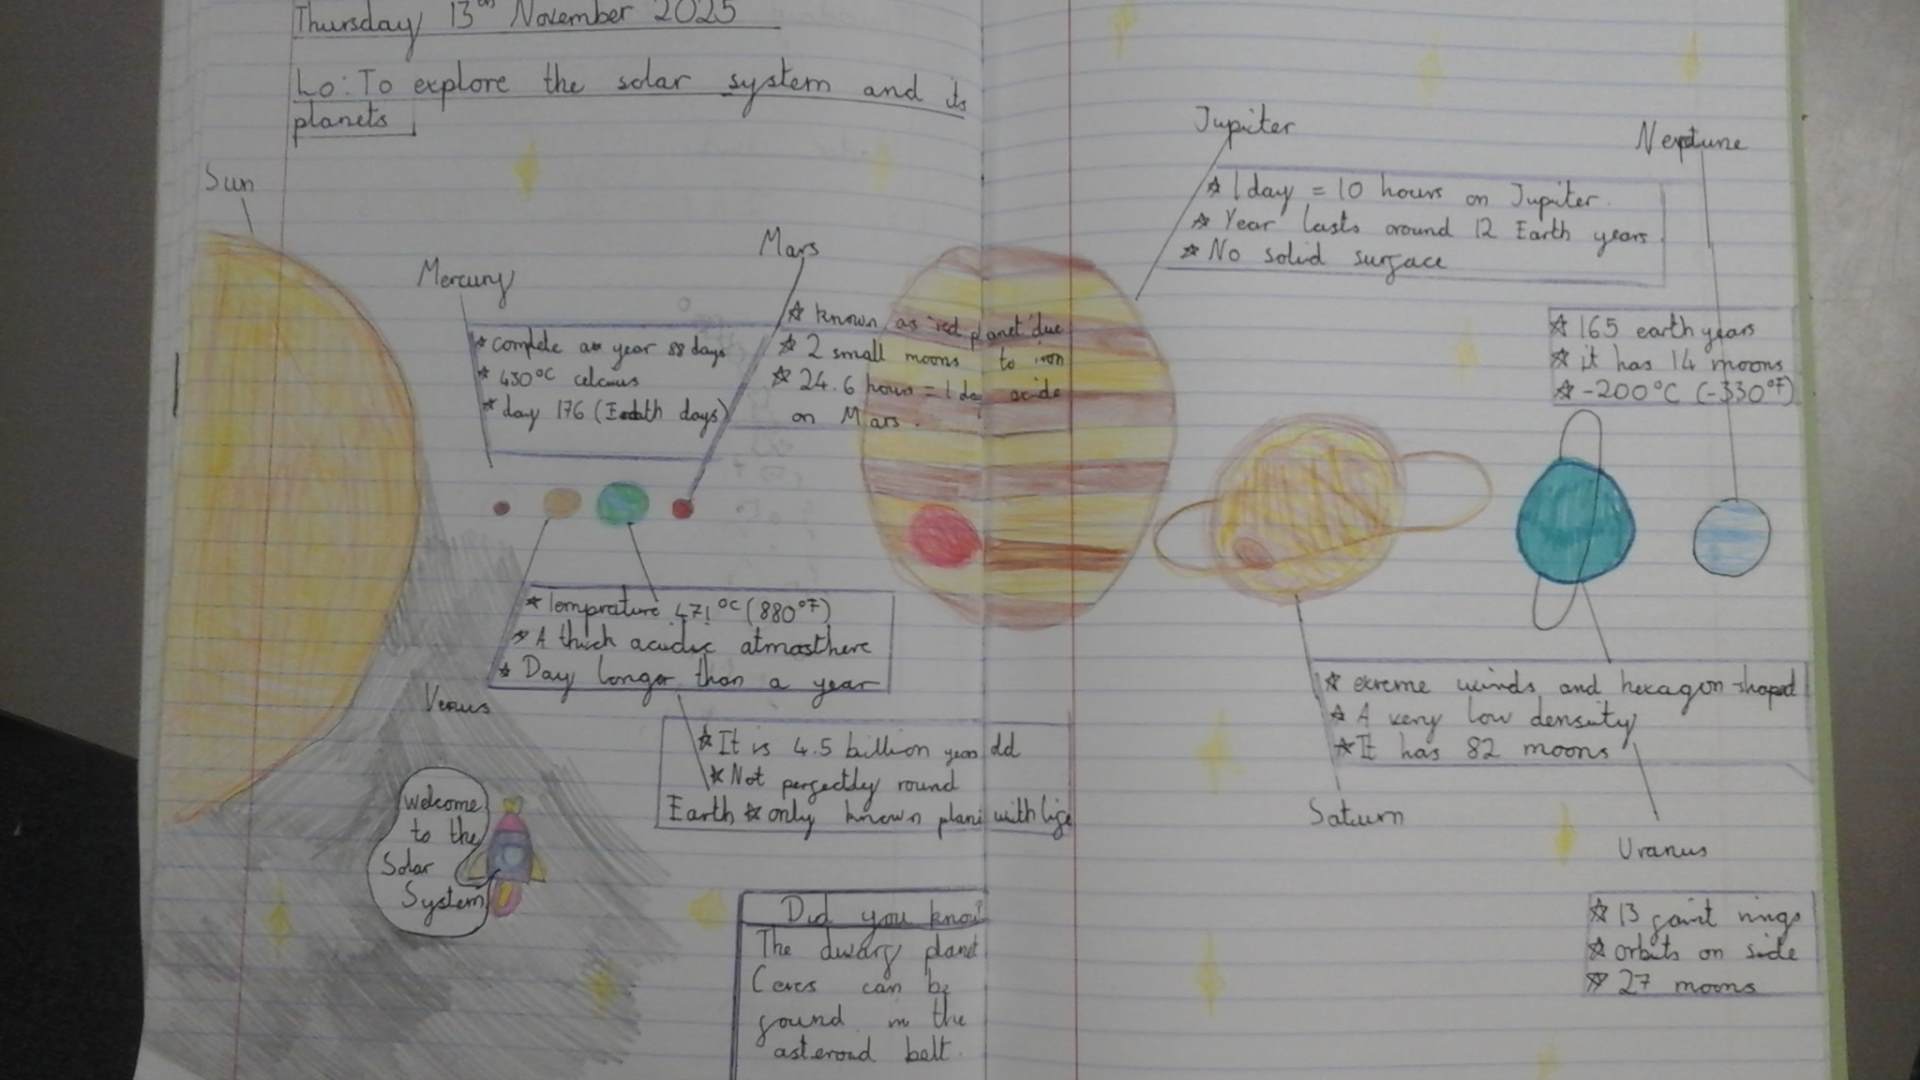 Thursday 13th November 2025
Lo: To explore the solar system and its
planets
Sun
Mercury
☆ complete a year 88 days
☆ 430°C celcius
☆ day 176 (Eadth days)
Mars
☆ known as red planet due
☆ 2 small moons to iron
☆ 24.6 hours = 1 day oxide
on Mars.
Jupiter
☆ 1 day = 10 hours on Jupiter.
☆ Year lasts around 12 Earth years.
☆ No solid surface
Neptune
☆ 165 earth years
☆ it has 14 moons
☆ -200°C (-330°F)
☆ Temprature 471°C (880°F)
☆ A thick acidic atmosthere
☆ Day longer than a year
Venus
☆ It is 4.5 billion years old
☆ Not perfectly round
Earth ☆ only known plant with life
☆ exreme winds and hexagon-shaped
☆ A very low density
☆ It has 82 moons
Saturn
Uranus
☆ 13 gaint rings
☆ orbits on side
☆ 27 moons
Welcome
to the
Solar
System
Did you know?
The dwarf planet
Ceres can be
found in the
asteroid belt.